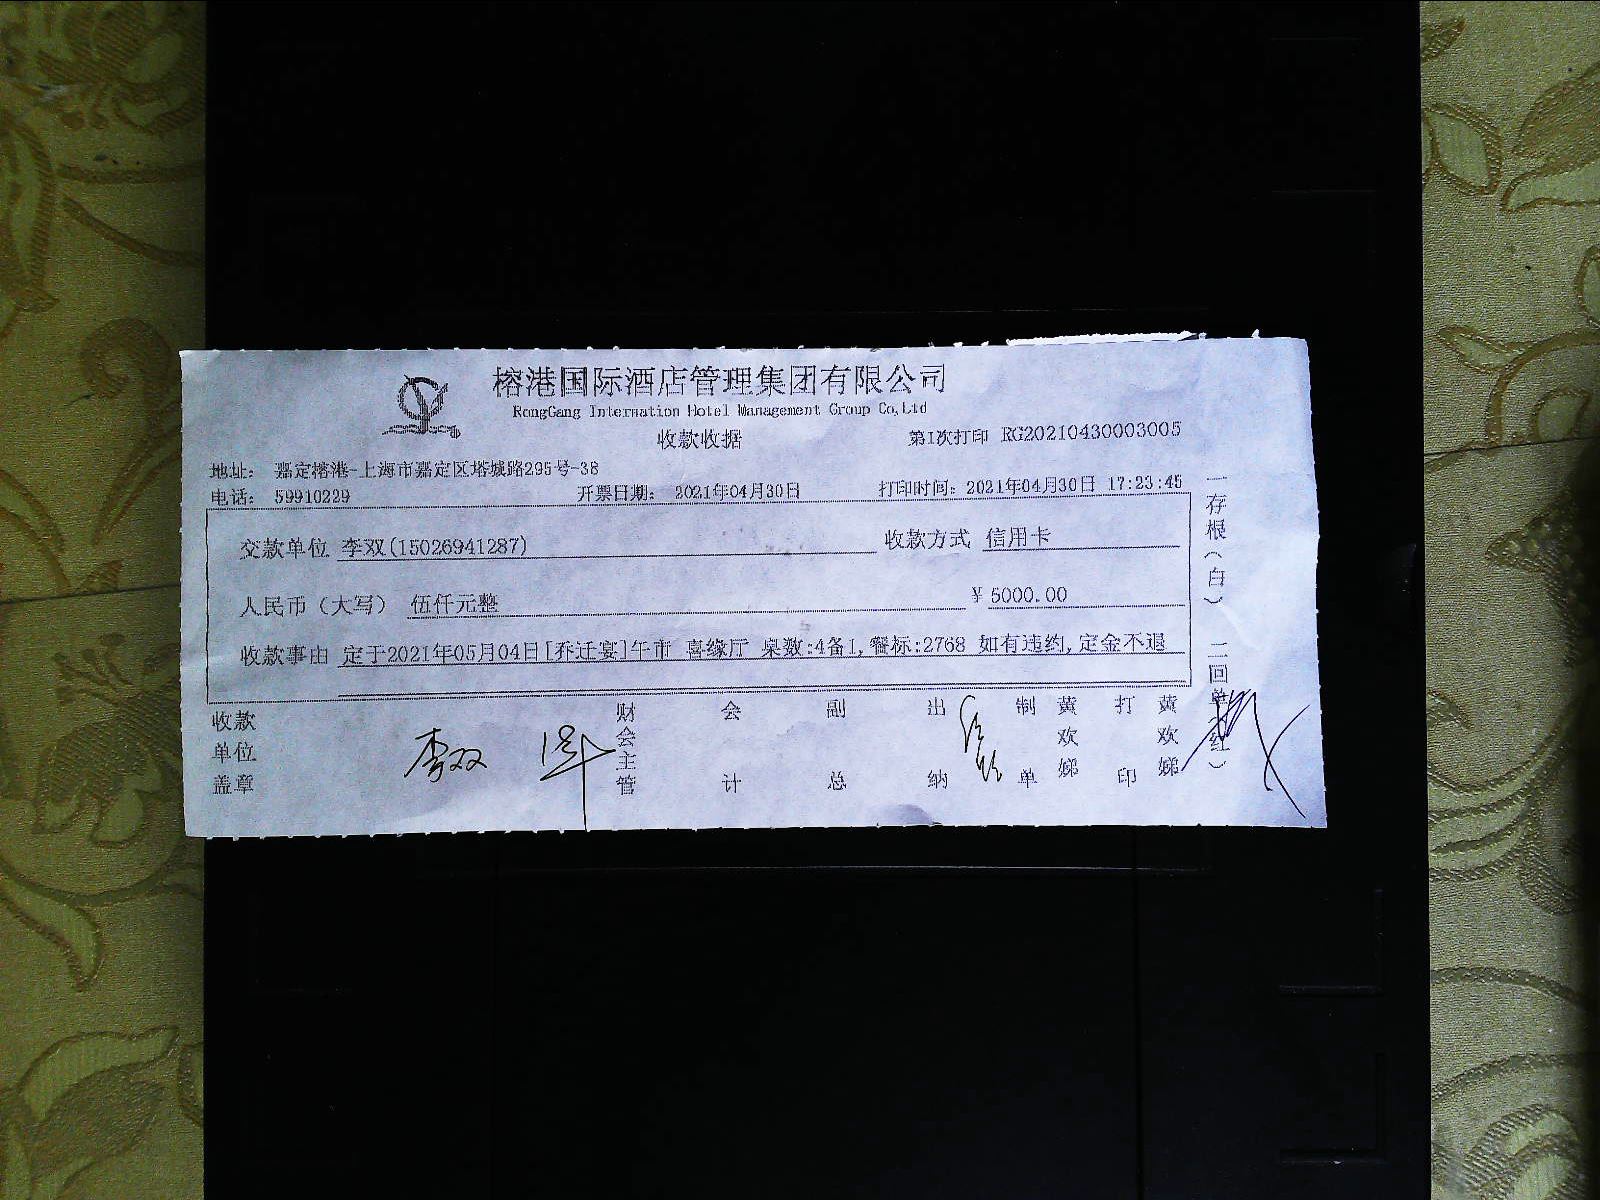 榕港国际酒店管理集团有限公司
RongGang Internation Hotel Management Group Co,Ltd
收款收据
第1次打印 RG20210430003005
地址： 嘉定榕港-上海市嘉定区塔城路295号-38
电话： 59910229 开票日期： 2021年04月30日 打印时间：2021年04月30日 17:23:45
交款单位 李双(15026941287) 收款方式 信用卡
人民币（大写） 伍仟元整 ¥ 5000.00
收款事由 定于2021年05月04日[乔迁宴]午市 喜缘厅 桌数:4备1,餐标:2768 如有违约,定金不退
收款单位盖章 李双 财会主管 会计 副总 出纳 制单 黄欢娣 打印 黄欢娣
一存根（白） 二回单（红）